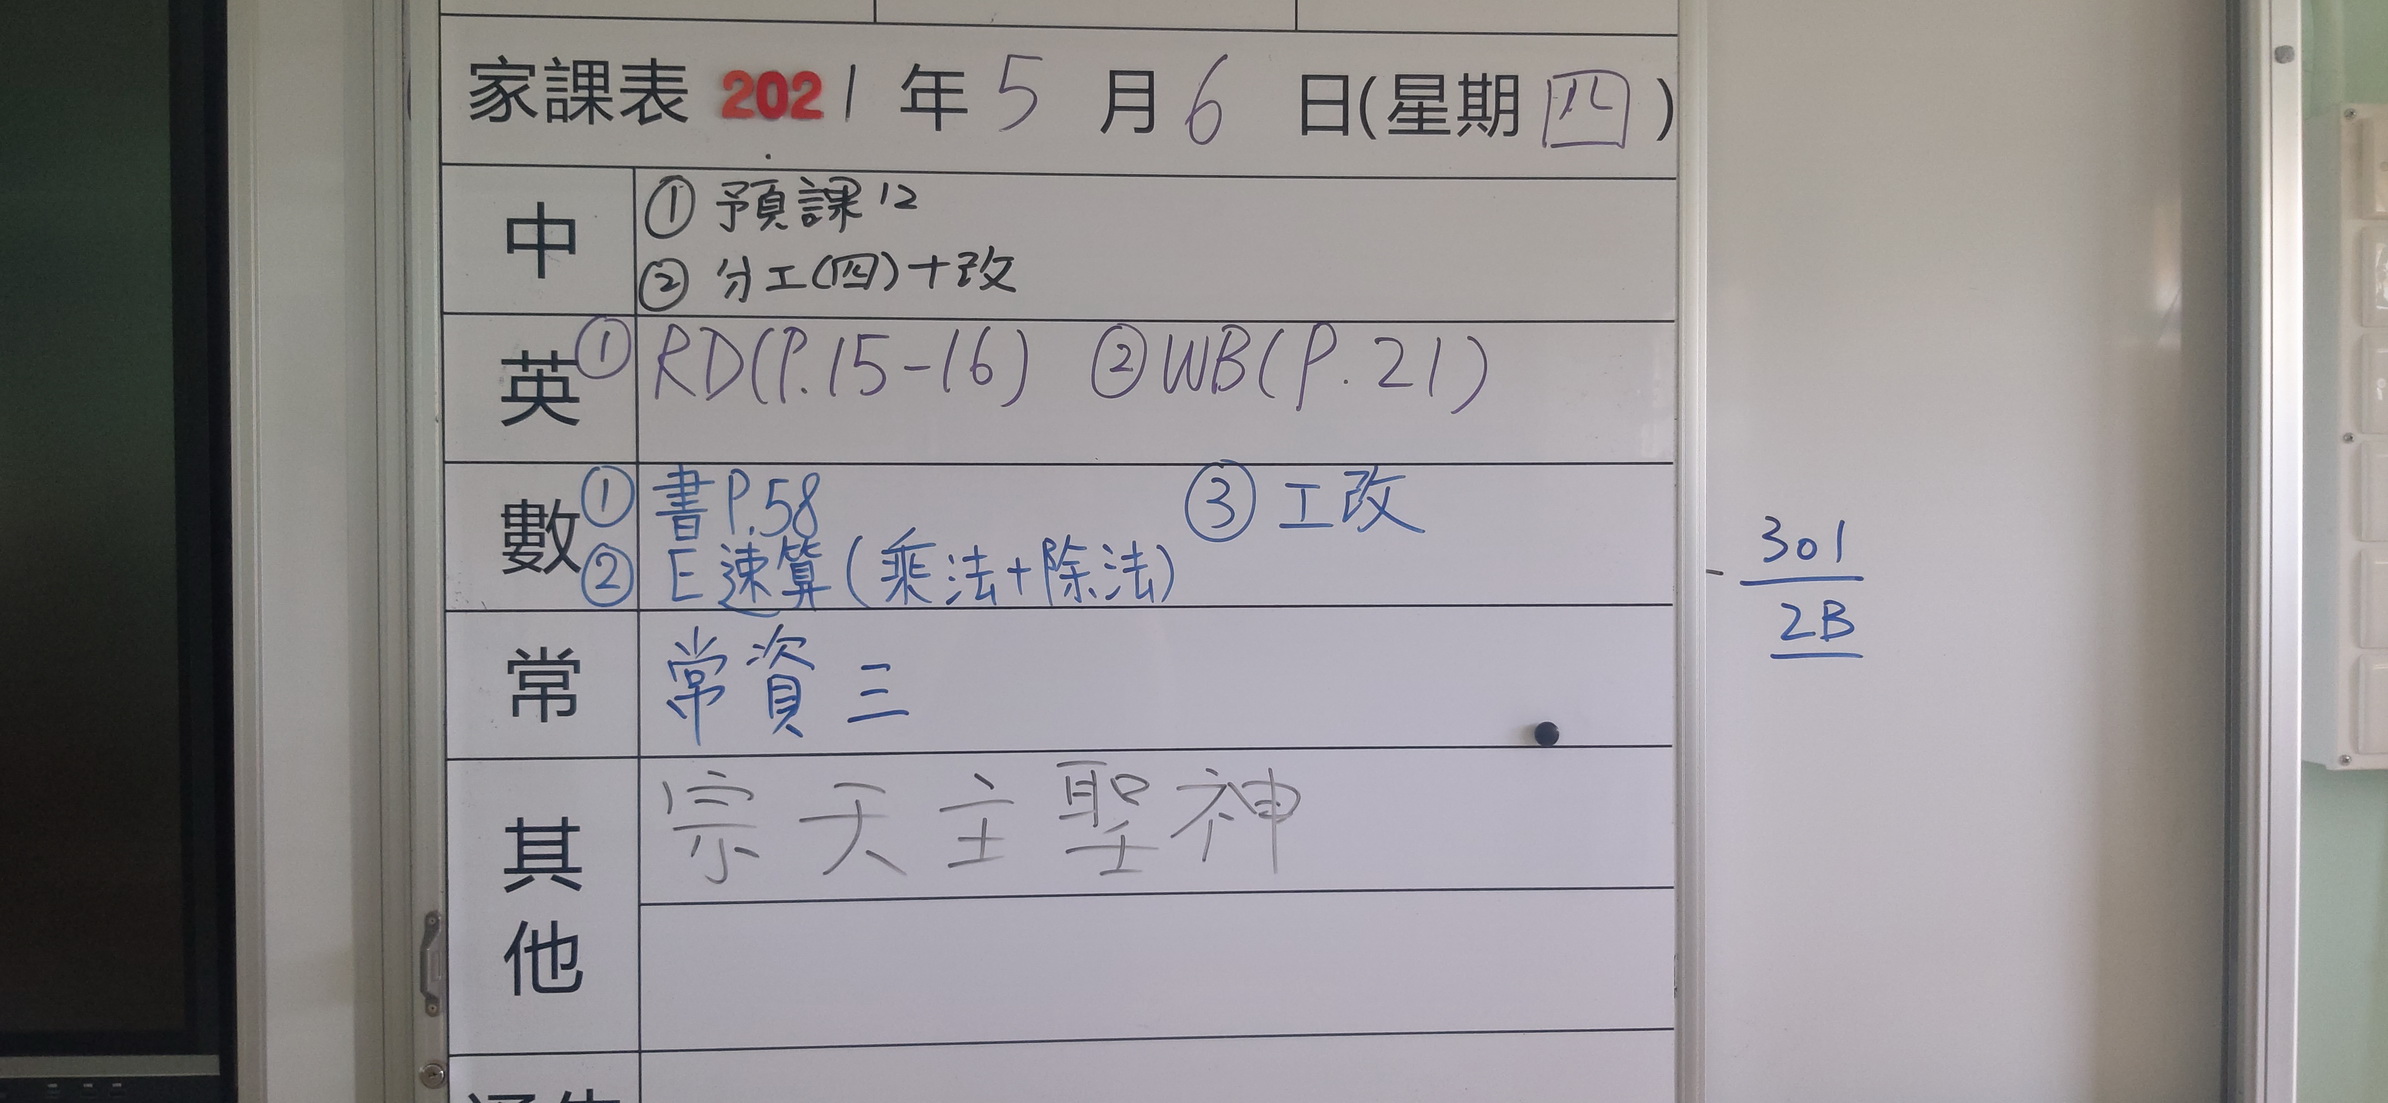 家課表 2021年5月6日(星期四)
中
① 預課12
② 分工(四)+改
英 ① RD(P.15-16) ② WB(P.21)
數
① 書P.58 ③ 工改
② E速算(乘法+除法)
301
2B
常 常資三
其他
宗天主聖神